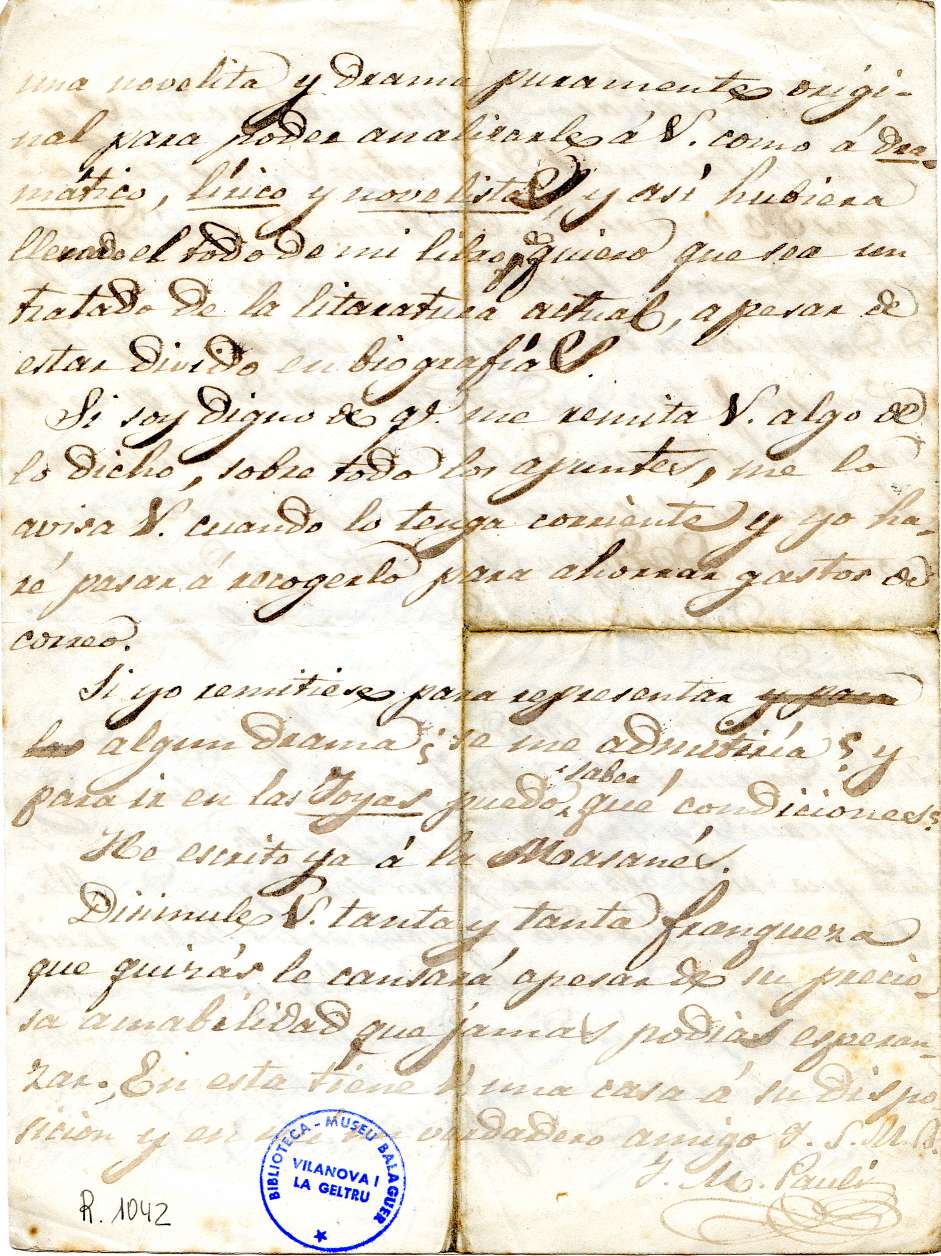 una novelita y drama puramente origi-
nal para poder analizarle á V. como á dra-
mático, lírico y novelista, y así hubiera
llenado el todo de mi libro, quiero que sea un
tratado de la litaratura actual, apesar de
estar divido en biografías.
Si soy digno de qe. me remita V. algo de
lo dicho, sobre todo los apuntes, me lo
avisa V. cuando lo tenga corriente y yo ha-
ré pasar á recogerlo para ahorrar gastos de
correo.
Si yo remitiese para representar y para
las algun drama ¿se me admitiría? y
para ir en las Joyas puedo saber qué condiciones?
He escrito ya á la Masanés.
Disimule V. tanta y tanta franqueza
que quizás le cansará apesar de su precio-
sa amabilidad que jamas podias esperan-
zar. En esta tiene V. una casa á su dispo-
sición y en mi un verdadero amigo Q. S. M. B.
J. M. Paulí
BIBLIOTECA - MUSEU BALAGUER
VILANOVA I
LA GELTRU
R. 1042